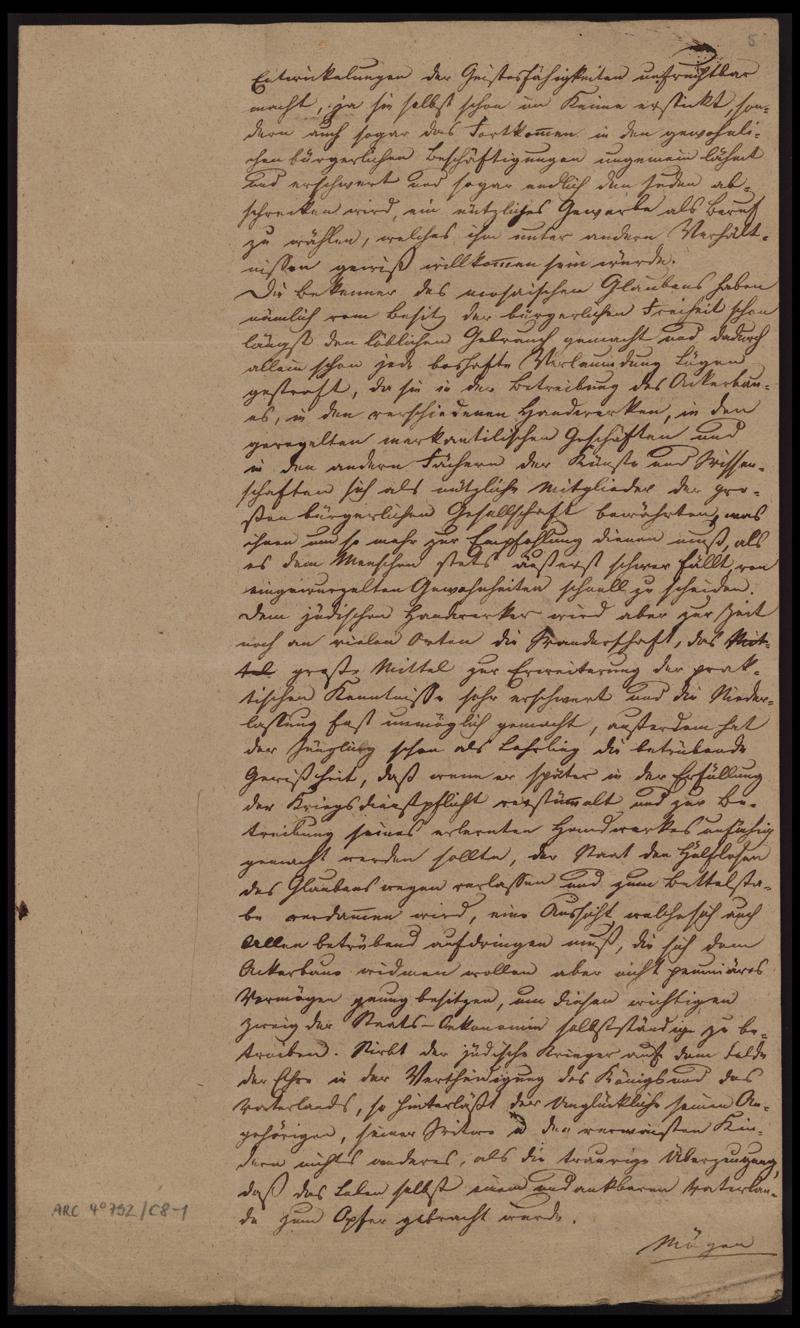 5
Entwickelungen der Geistesfähigkeiten unfruchtbar
macht, ja sie selbst schon im Keime erstickt, son-
dern auch sogar das Fortkom̄en in den gewöhnli-
chen bürgerlichen Beschäftigungen ungemein lähmt
und erschwert und sogar endlich den Juden ab-
schrecken wird, ein nützliches Gewerbe als Beruf
zu wählen, welches ihm unter andern Verhält-
nissen gewiß willkom̄en sein würde.
Die Bekenner des mosaischen Glaubens haben
nämlich vom Besitz der bürgerlichen Freiheit schon
längst den löblichen Gebrauch gemacht und dadurch
allein schon jede boshafte Verläumdung Lügen
gestraft, da sie in der Betreibung des Ackerbau-
es, in den verschiedenen Handwerken, in den
geregelten merkantilischen Geschäften und
in den andern Fächern der Künste und Wissen-
schaften sich als nützliche Mitglieder der gro-
ßen bürgerlichen Gesellschaft bewährten, was
ihnen um so mehr zur Empfehlung dienen muß, als
es dem Menschen stets äußerst schwer fällt, von
eingewurzelten Gewohnheiten schnell zu scheiden.
Dem jüdischen Handwerker wird aber zur Zeit
noch an vielen Orten die Wanderschaft, das Mit-
tel große Mittel zur Erweiterung der prak-
tischen Kenntnisse sehr erschwert und die Nieder-
lassung fast unmöglich gemacht, außerdem hat
der Jüngling schon als Lehrling die betrübende
Gewißheit, daß wenn er später in der Erfüllung
der Kriegsdienstpflicht verstüm̄elt und zur Be-
treibung seines erlernten Handwerkes unfähig
gemacht werden sollte, der Staat den Hülflosen
des Glaubens wegen verlassen und zum Bettelsta-
be verdam̄en wird, eine Aussicht, welche sich auch
Allen betrübend aufdringen muß, die sich dem
Ackerbaue widmen wollen aber nicht pecuniäres
Vermögen genug besitzen, um diesen wichtigen
Zweig der Staats-Oekonomie selbstständig zu be-
treiben. Stirbt der jüdische Krieger auf dem Felde
der Ehre in der Vertheidigung des Königs und des
Vaterlands, so hinterläßt der Unglückliche seinen An-
gehörigen, seiner Wittwe u den verwaisten Kin-
dern nichts anderes, als die traurige Überzeugung,
daß das Leben selbst einem undankbaren Vaterlan-
de zum Opfer gebracht wurde.
Mögen
ARC 4° 792/C8-1